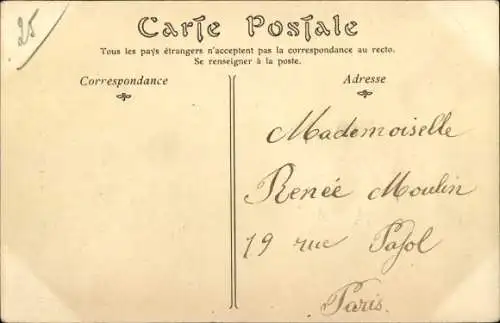 25
Carte Postale
Tous les pays étrangers n'acceptent pas la correspondance au recto.
Se renseigner à la poste.
Correspondance
Adresse
Mademoiselle
Renée Moulin
19 rue Pajol
Paris.